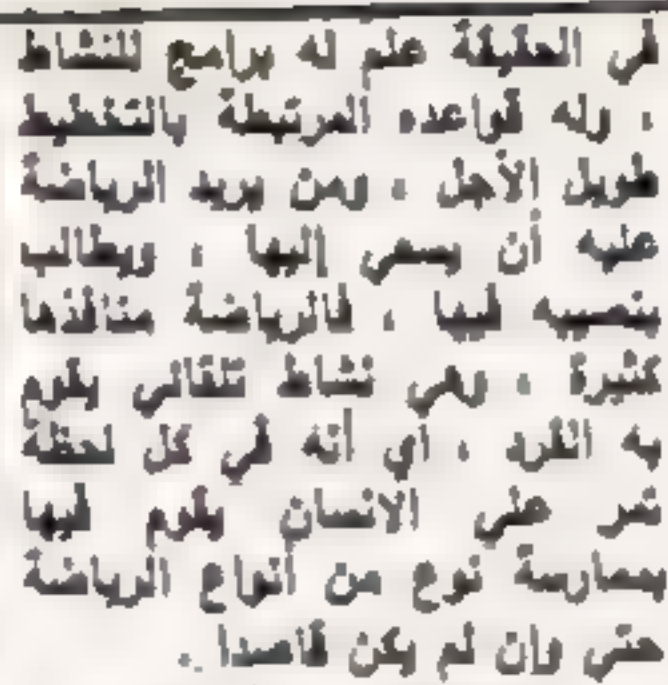 في الحقيقة علم له برامج للنشاط
، وله قواعده المرتبطة بالتخطيط
طويل الأجل ، ومن يريد الرياضة
عليه أن يسعى إليها ، ويطالب
بنصيبه فيها ، فالرياضة منافذها
كثيرة ، وهي نشاط تلقائي يقوم
به الفرد ، اي أنه في كل لحظة
تمر علي الانسان يقوم فيها
بممارسة نوع من أنواع الرياضة
حتي وان لم يكن قاصدا ..